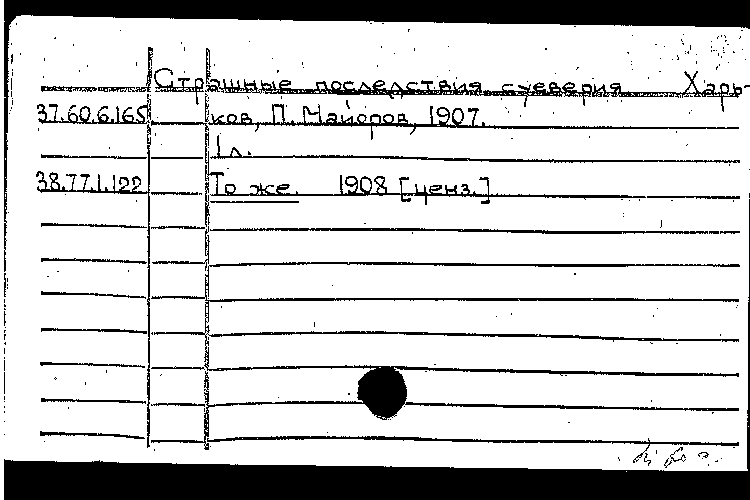 Страшные последствия суеверия Харь-
37.60.6.165 ков, П. Майоров, 1907.
1 л.
38.77.1.122 То же. 1908 [ценз.]